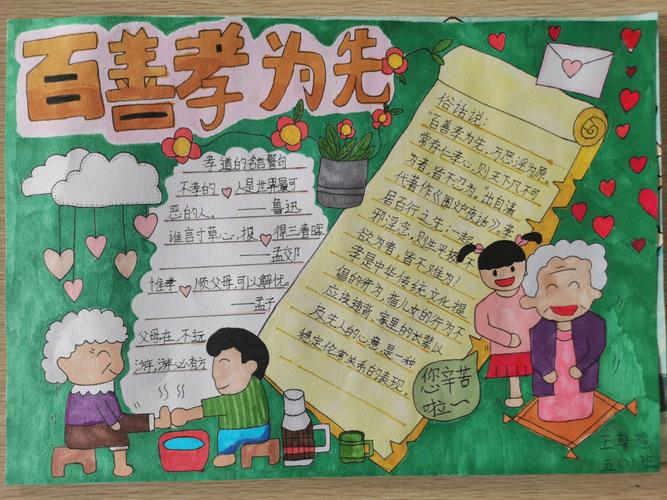 百善孝为先
孝道的名言警句
不孝的人是世界最可
恶的人。 鲁迅
谁言寸草心,报得三春晖
——孟郊
惟孝顺父母,可以解忧。
——孟子
父母在,不远
游,游必有方
俗话说:
"百善孝为先,万恶淫为原
常存仁孝心,则天下凡不可
为者,皆不忍为"出自清
代著作《围炉夜话》。孝
居百行之先;一起
邪淫念,则生平极不
欲为者,皆不难为!
孝是中华传统文化提
倡的行为,指儿女的行为不
应该违背家里的长辈以
及先人的心意是一种
稳定伦常关系的表现。
您辛苦
啦~
王馨
五(1)班